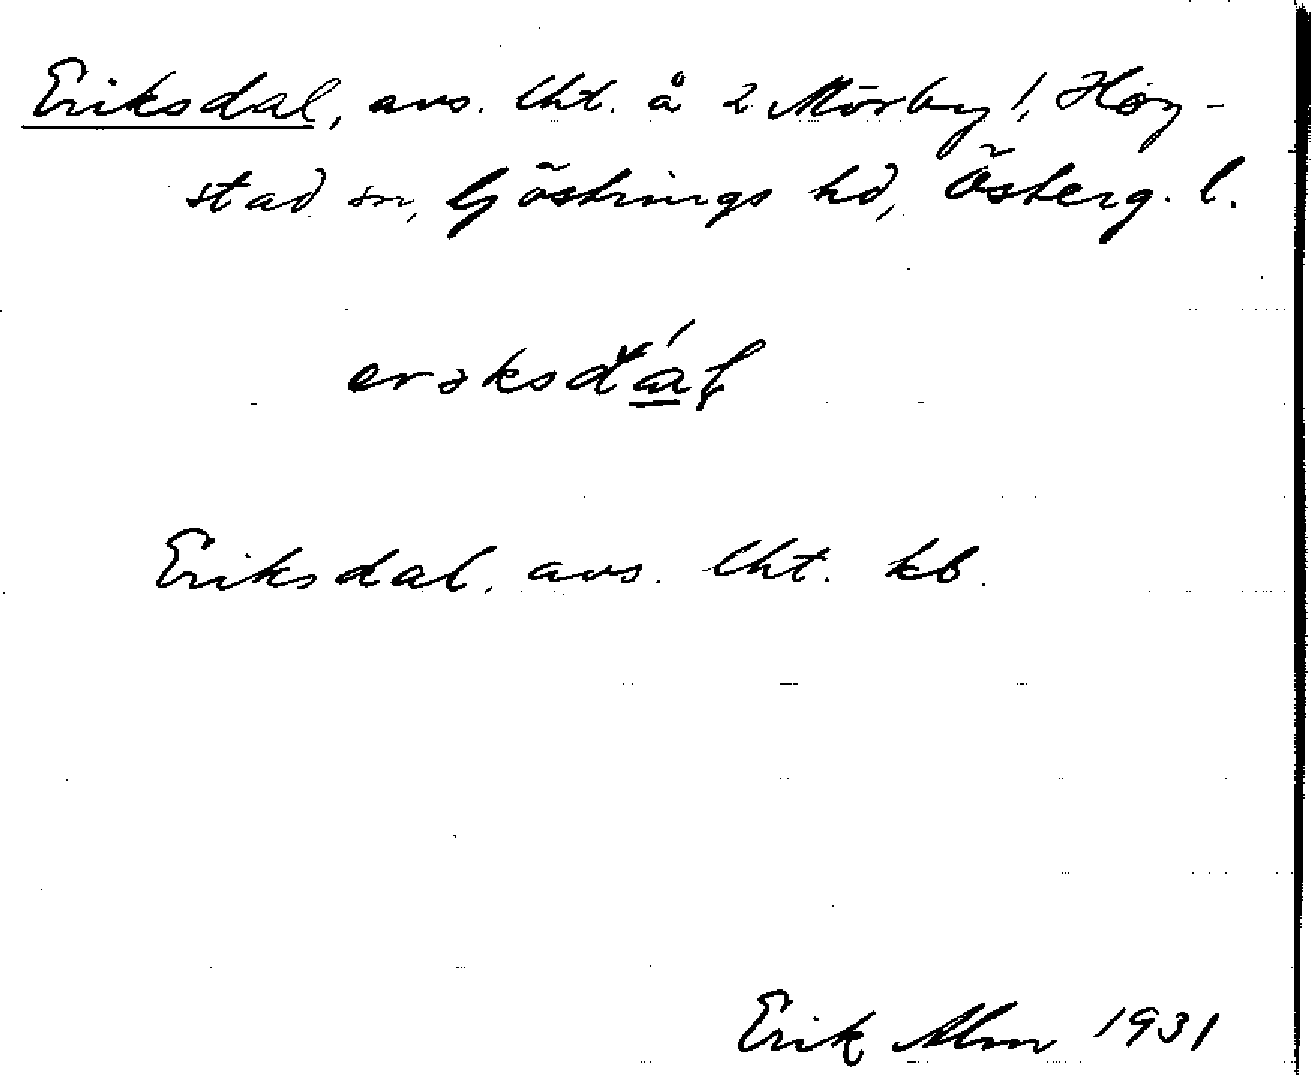 Eriksdal, avs. lht. å 2 Mörby!, Hög-
stad sn, Göstrings hd, Österg. l.
erəksdál
Eriksdal, avs. lht. kb.
Erik Alm 1931